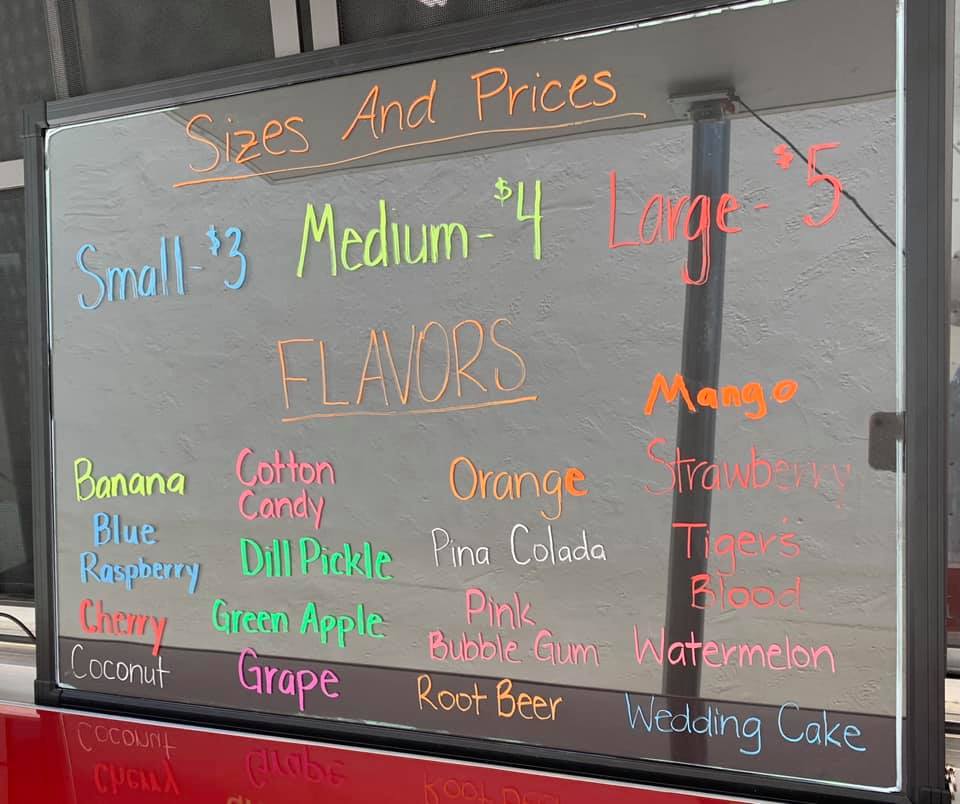 Sizes And Prices
Small-$3 Medium-$4 Large-$5
FLAVORS
Banana
Blue
Raspberry
Cherry
Coconut
Cotton
Candy
Dill Pickle
Green Apple
Grape
Orange
Pina Colada
Pink
Bubble Gum
Root Beer
Mango
Strawberry
Tiger's
Blood
Watermelon
Wedding Cake